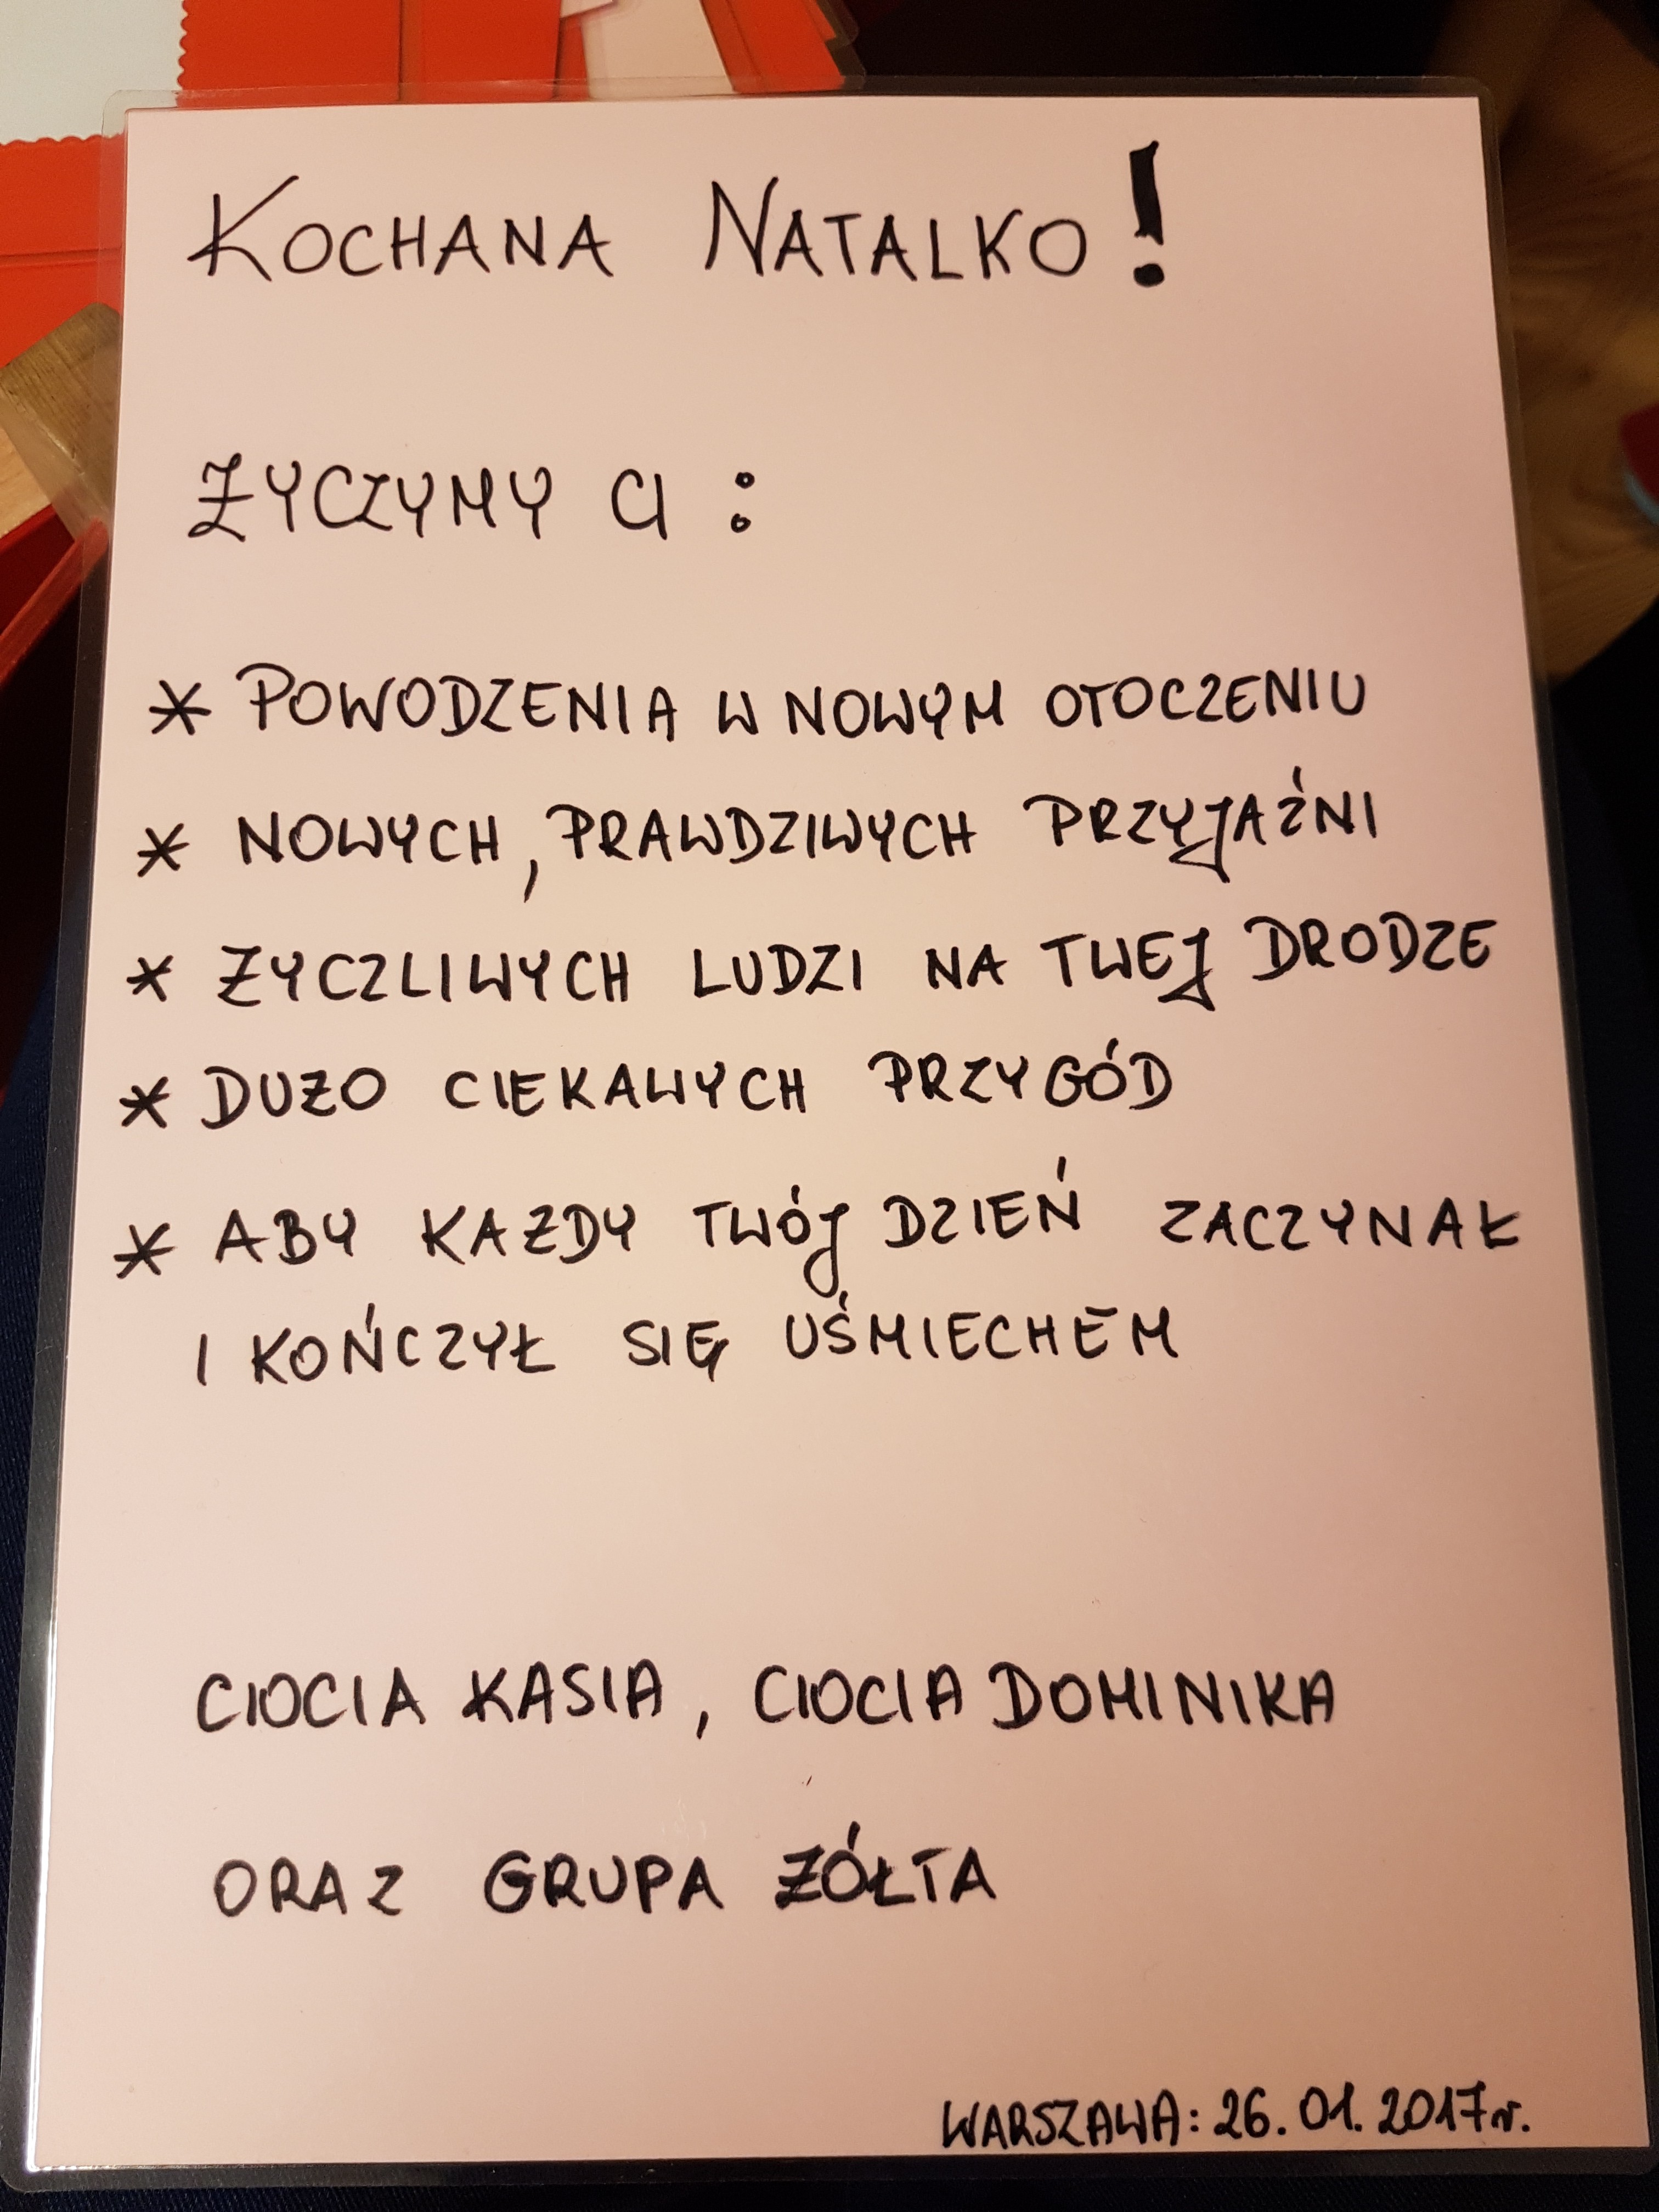 KOCHANA NATALKO!
ŻYCZYMY CI :
* POWODZENIA W NOWYM OTOCZENIU
* NOWYCH, PRAWDZIWYCH PRZYJAŹNI
* ŻYCZLIWYCH LUDZI NA TWEJ DRODZE
* DUŻO CIEKAWYCH PRZYGÓD
* ABY KAŻDY TWÓJ DZIEŃ ZACZYNAŁ
I KOŃCZYŁ SIĘ UŚMIECHEM
CIOCIA KASIA, CIOCIA DOMINIKA
ORAZ GRUPA ŻÓŁTA
WARSZAWA: 26.01.2017r.